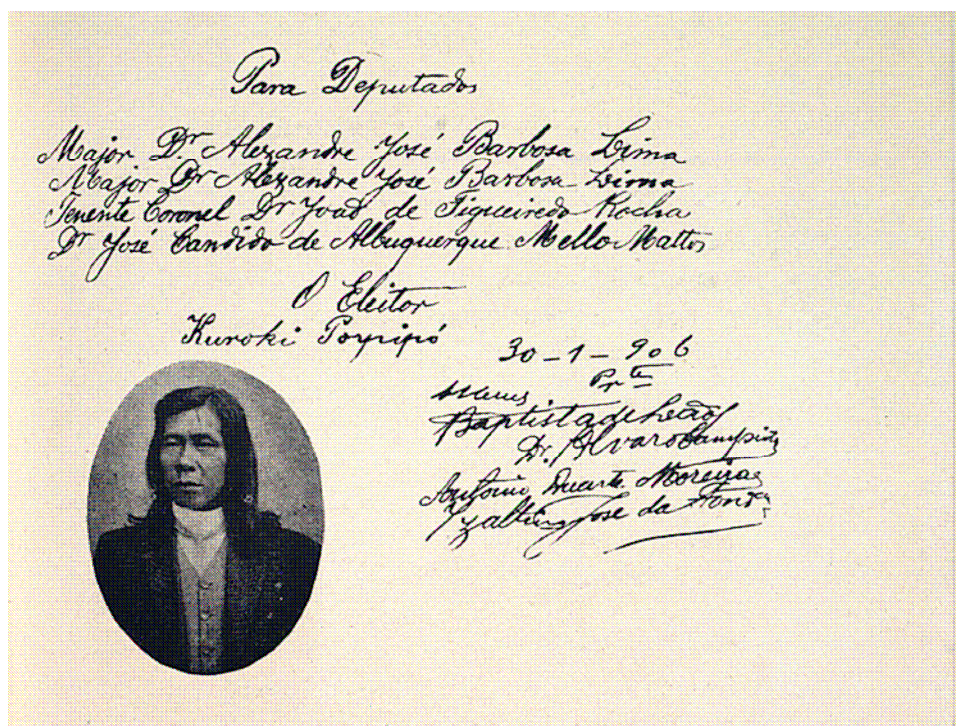 Para Deputados
Major Dr. Alexandre José Barbosa Lima
Major Dr Alexandre José Barbosa Lima
Tenente Coronel Dr João de Figueiredo Rocha
Dr José Candido de Albuquerque Mello Mattos
O Eleitor
Kuroki Poypipó
30-1-906
Baptista de Leão
Dr. Alvaro
Antonio Duarte Moreira
José da